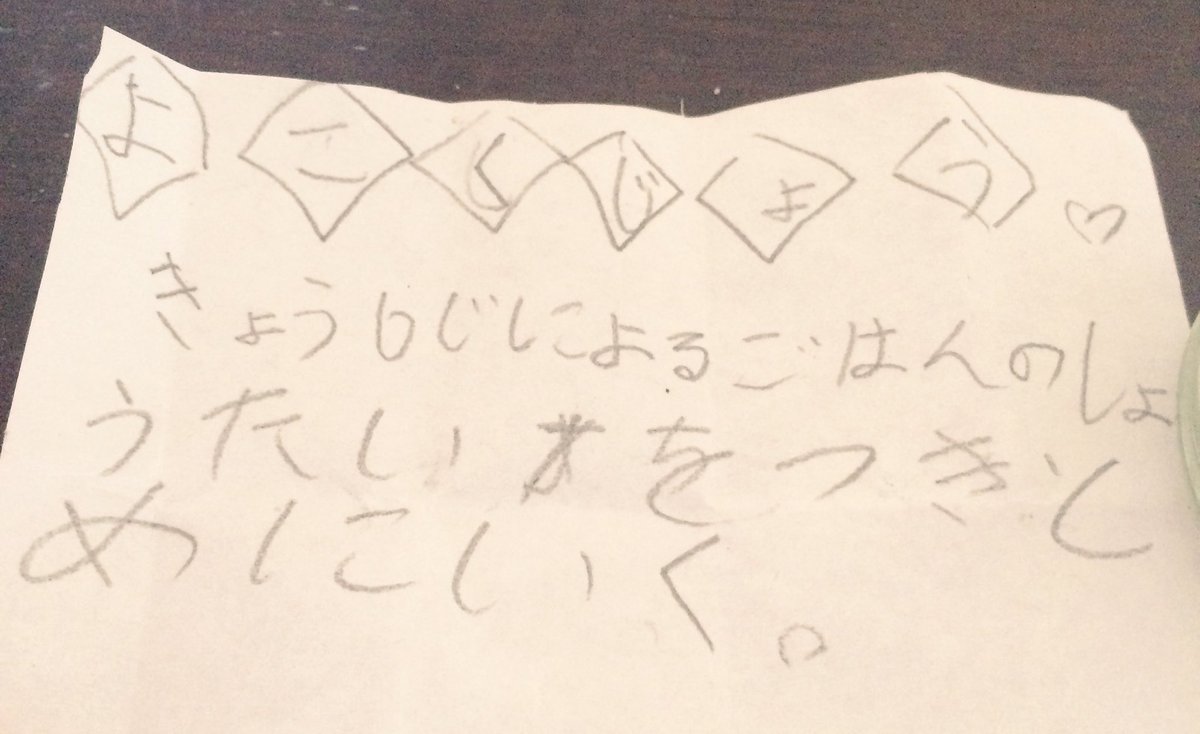 よこくじょう♡
きょう6じによるごはんのしょ
うたいをつきと
めにいく。